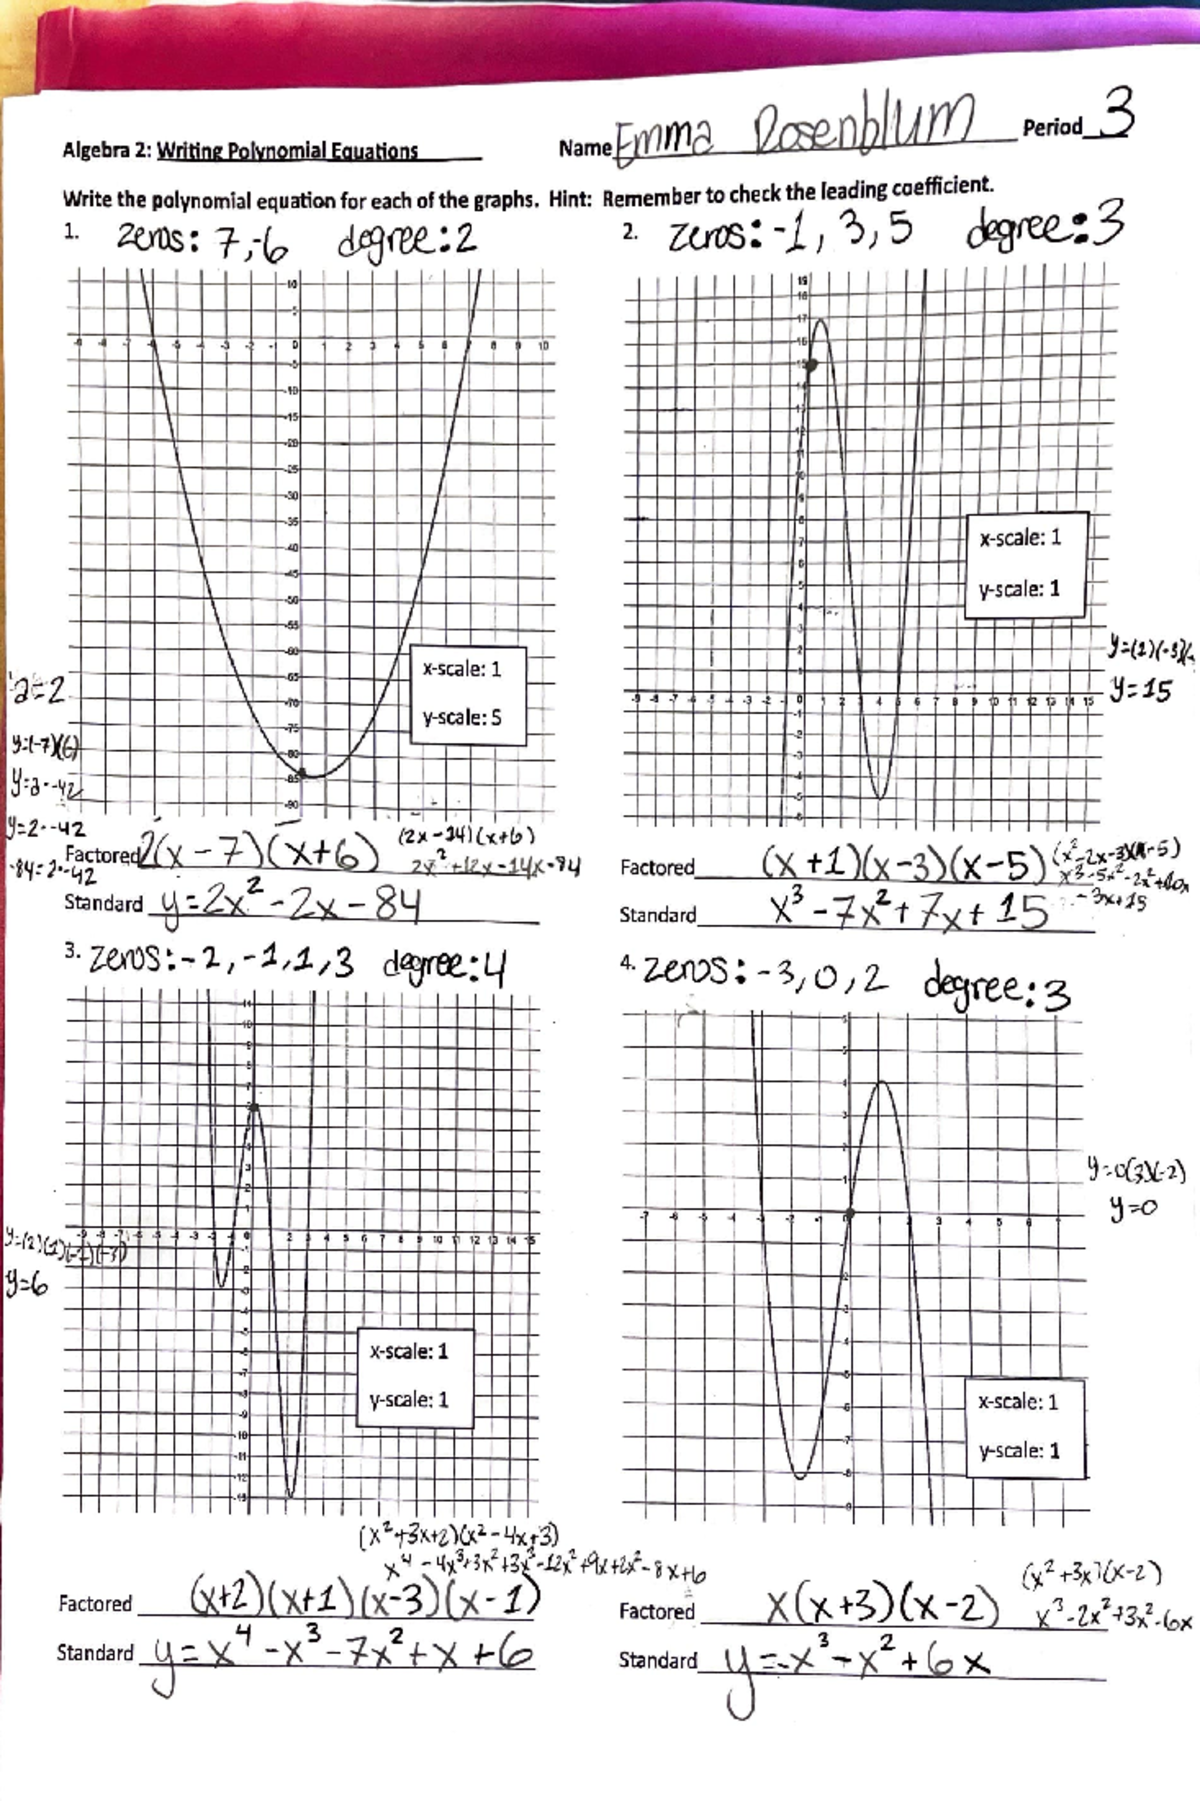 Algebra 2: Writing Polynomial Equations Name Emma Rosenblum Period 3
Write the polynomial equation for each of the graphs. Hint: Remember to check the leading coefficient.
1. zeros: 7,-6 degree:2
x-scale: 1
y-scale: 5
a=2
y=(-7)(6)
y=a·-42
y=2·-42
-84=2·-42
Factored 2(x-7)(x+6)
(2x-14)(x+6)
2x²+12x-14x-84
Standard y=2x²-2x-84
2. zeros: -1, 3, 5 degree: 3
x-scale: 1
y-scale: 1
y=15
Factored (x+1)(x-3)(x-5)
(x²-2x-3)(x-5)
x³-5x²-2x²+10x
-3x+15
Standard x³-7x²+7x+15
3. zeros:-2,-1,1,3 degree:4
x-scale: 1
y-scale: 1
y=(2)(1)(-1)(-3)
y=6
(x²+3x+2)(x²-4x+3)
x⁴-4x³+3x²+3x³-12x²+9x+2x²-8x+6
Factored (x+2)(x+1)(x-3)(x-1)
Standard y=x⁴-x³-7x²+x+6
4. zeros: -3,0,2 degree: 3
x-scale: 1
y-scale: 1
y=0(3)(-2)
y=0
(x²+3x)(x-2)
x³-2x²+3x²-6x
Factored x(x+3)(x-2)
Standard y=-x³-x²+6x